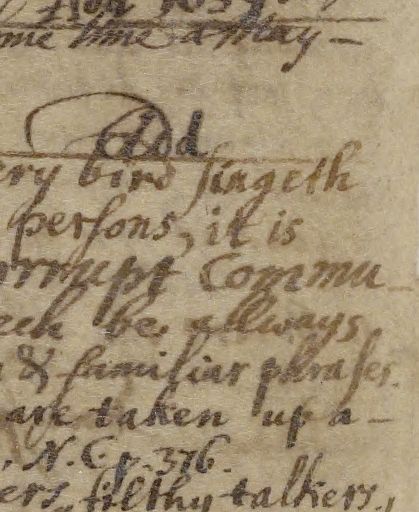 Add 1639
ome time a May -
Add
ery bird singeth
persons, it is
orrupt Commu_
eech be allways
& familiar phrases.
are taken up a-
, N.C. p. 376.
ers, filthy talkers,